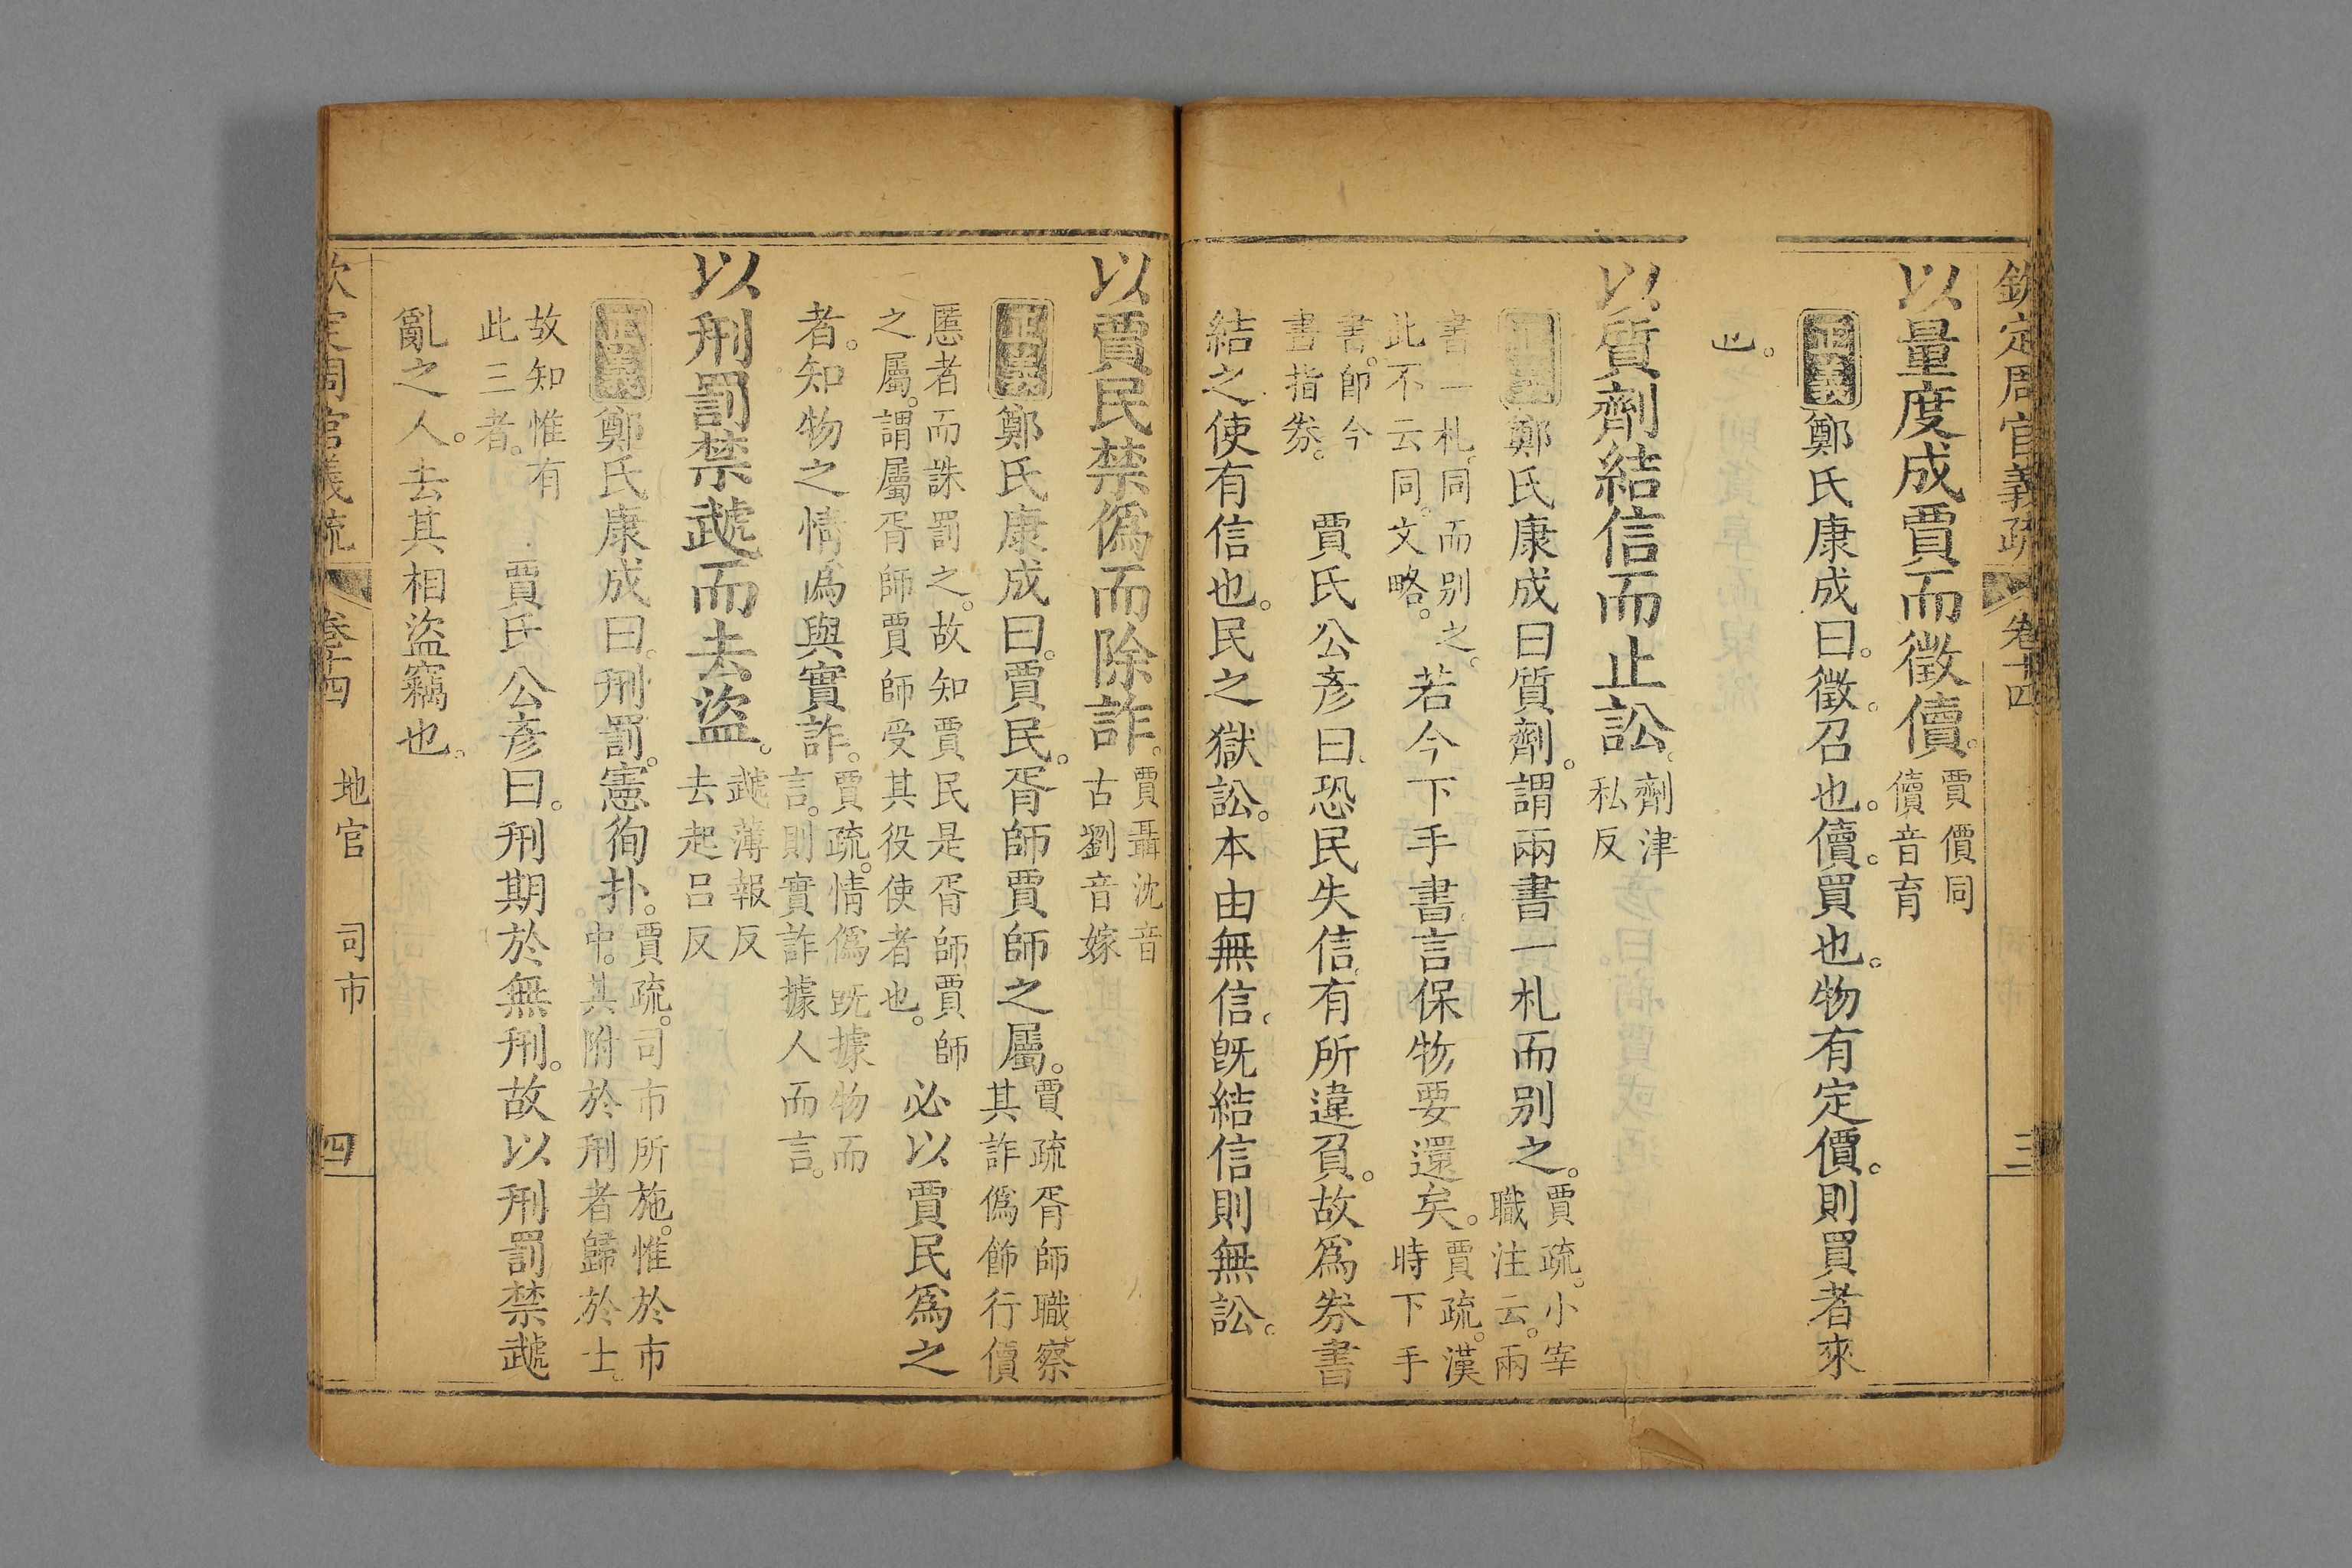 欽定周官義疏 卷十四 三
以量度成賈而徵儥。賈價同儥音育
正義鄭氏康成曰。徵。召也。儥。買也。物有定價。則買者來
也。
以質劑結信而止訟。劑津私反
正義鄭氏康成曰質劑。謂兩書一札而別之。賈疏。小宰職注云。兩
書一札。同而別之。此不云同。文略。若今下手書。言保物要還矣。賈疏。漢時下手
書。即今書指劵。賈氏公彥曰。恐民失信。有所違負。故爲劵書
結之使有信也。民之獄訟。本由無信。旣結信則無訟。
以賈民禁僞而除詐。賈聶沈音古劉音嫁
正義鄭氏康成曰。賈民。胥師賈師之屬。賈疏胥師職。察其詐僞飾行儥
慝者而誅罰之。故知賈民是胥師賈師之屬。謂屬胥師賈師受其役使者也。必以賈民爲之
者。知物之情僞與實詐。賈疏。情僞旣據物而言。則實詐據人而言。
以刑罰禁虣而去盜。虣薄報反去起呂反
正義鄭氏康成曰。刑罰。憲徇扑。賈疏。司市所施。惟於市中。其附於刑者歸於士。
故知惟有此三者。賈氏公彥曰。刑期於無刑。故以刑罰禁虣
亂之人。去其相盜竊也。
欽定周官義疏 卷十四 地官 司市 四